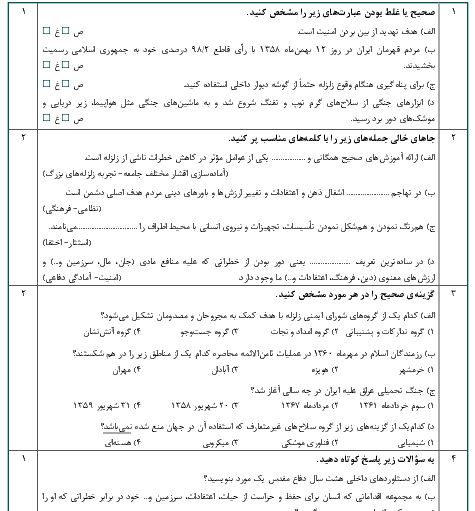 ۱ صحیح یا غلط بودن عبارت‌های زیر را مشخص کنید. ۱
الف) هدف تهدید از بین بردن امنیت است. ص غ
ب) مردم قهرمان ایران در روز ۱۲ بهمن‌ماه ۱۳۵۸ با رأی قاطع ۹۸/۲ درصدی خود به جمهوری اسلامی رسمیت
بخشیدند. ص غ
ج) برای پناه‌گیری هنگام وقوع زلزله حتماً از گوشه دیوار داخلی استفاده کنید. ص غ
د) ابزارهای جنگی از سلاح‌های گرم توپ و تفنگ شروع شد و به ماشین‌های جنگی مثل هواپیما، زیر دریایی و
موشک‌های دور برد رسید. ص غ
۲ جاهای خالی جمله‌های زیر را با کلمه‌های مناسب پر کنید. ۲
الف) ارائه آموزش‌های صحیح همگانی و ............... یکی از عوامل مؤثر در کاهش خطرات ناشی از زلزله است.
(آماده‌سازی اقشار مختلف جامعه- تجربه زلزله‌های بزرگ)
ب) در تهاجم .................. اشغال ذهن و اعتقادات و تغییر ارزش‌ها و باورهای دینی مردم هدف اصلی دشمن است.
(نظامی- فرهنگی)
ج) هم‌رنگ نمودن و هم‌شکل نمودن تأسیسات، تجهیزات و نیروی انسانی با محیط اطراف را ......................... می‌نامند.
(استتار- اختفا)
د) در ساده‌ترین تعریف .................. یعنی دور بودن از خطراتی که علیه منافع مادی (جان، مال، سرزمین و..) و
ارزش‌های معنوی (دین، فرهنگ، اعتقادات و..) ما وجود دارد. (امنیت- آمادگی دفاعی)
۳ گزینه‌ی صحیح را در هر مورد مشخص کنید. ۲
الف) کدام یک از گروه‌های شورای ایمنی زلزله با هدف کمک به مجروحان و مصدومان تشکیل می‌شود؟
۱) گروه تدارکات و پشتیبانی ۲) گروه امداد و نجات ۳) گروه جست‌وجو ۴) گروه آتش‌نشان
ب) رزمندگان اسلام در مهرماه ۱۳۶۰ در عملیات ثامن‌الائمه محاصره کدام یک از مناطق زیر را در هم شکستند؟
۱) خرمشهر ۲) هویزه ۳) آبادان ۴) مهران
ج) جنگ تحمیلی عراق علیه ایران در چه سالی آغاز شد؟
۱) سوم خردادماه ۱۳۶۱ ۲) مردادماه ۱۳۶۷ ۳) ۲۰ شهریور ۱۳۵۸ ۴) ۳۱ شهریور ۱۳۵۹
د) کدام‌یک از گزینه‌های زیر از گروه سلاح‌های غیرمتعارف که استفاده آن در جهان منع شده نمی‌باشد؟
۱) شیمیایی ۲) فناوری موشکی ۳) میکروبی ۴) هسته‌ای
۴ به سؤالات زیر پاسخ کوتاه دهید. ۱
الف) از دستاوردهای داخلی هشت سال دفاع مقدس یک مورد بنویسید؟
ب) به مجموعه اقداماتی که انسان برای حفظ و حراست از حیات، اعتقادات، سرزمین و.. خود در برابر خطراتی که او را